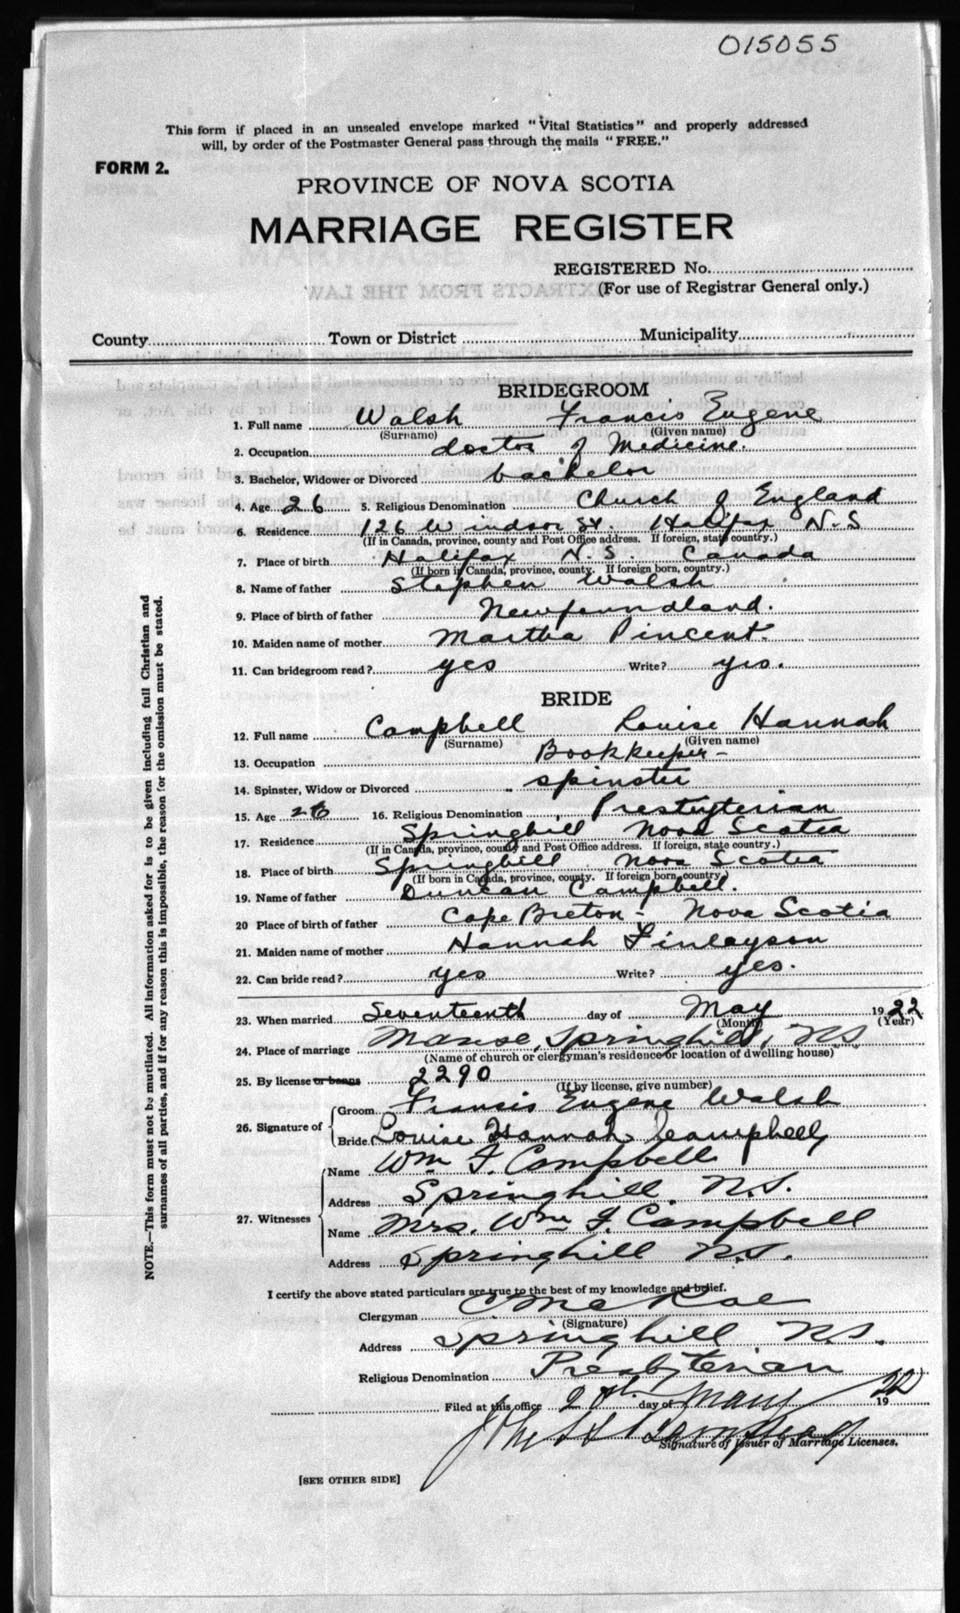 015055
This form if placed in an unsealed envelope marked "Vital Statistics" and properly addressed
will, by order of the Postmaster General pass through the mails "FREE."
FORM 2.
PROVINCE OF NOVA SCOTIA
MARRIAGE REGISTER
REGISTERED No.
(For use of Registrar General only.)
County Town or District Municipality
BRIDEGROOM
1. Full name Walsh Francis Eugene
(Surname) (Given name)
2. Occupation doctor of Medicine.
3. Bachelor, Widower or Divorced bachelor
4. Age 26 5. Religious Denomination Church of England
6. Residence 126 Windsor St. Halifax N-S
(If in Canada, province, county and Post Office address. If foreign, state country.)
7. Place of birth Halifax N.S. Canada
(If born in Canada, province, county. If foreign born, country.)
8. Name of father Stephen Walsh
9. Place of birth of father Newfoundland.
10. Maiden name of mother Martha Pincent.
11. Can bridegroom read? yes Write? yes.
BRIDE
12. Full name Campbell Louise Hannah
(Surname) (Given name)
13. Occupation Bookkeeper-
14. Spinster, Widow or Divorced spinster
15. Age 26 16. Religious Denomination Presbyterian
17. Residence Springhill Nova Scotia
(If in Canada, province, county and Post Office address. If foreign, state country.)
18. Place of birth Springhill Nova Scotia
(If born in Canada, province, county. If foreign born, country)
19. Name of father Duncan Campbell.
20 Place of birth of father Cape Breton - Nova Scotia
21. Maiden name of mother Hannah Finlayson
22. Can bride read? yes Write? yes.
23. When married Seventeenth day of May 1922
(Month) (Year)
24. Place of marriage Manse, Springhill, N.S.
(Name of church or clergyman's residence or location of dwelling house)
25. By license or banns 2290
(If by license, give number)
26. Signature of Groom Francis Eugene Walsh
Bride Louise Hannah Campbell
27. Witnesses Name Wm F. Campbell
Address Springhill, N.S.
Name Mrs. Wm F. Campbell
Address Springhill N.S.
I certify the above stated particulars are true to the best of my knowledge and belief.
Clergyman McRae
(Signature)
Address Springhill N.S.
Religious Denomination Presbyterian
Filed at this office day of May 1922
John
Signature of Issuer of Marriage Licenses.
[SEE OTHER SIDE]
NOTE.—This form must not be mutilated. All information asked for is to be given including full Christian and
surnames of all parties, and if for any reason this is impossible, the reason for the omission must be stated.